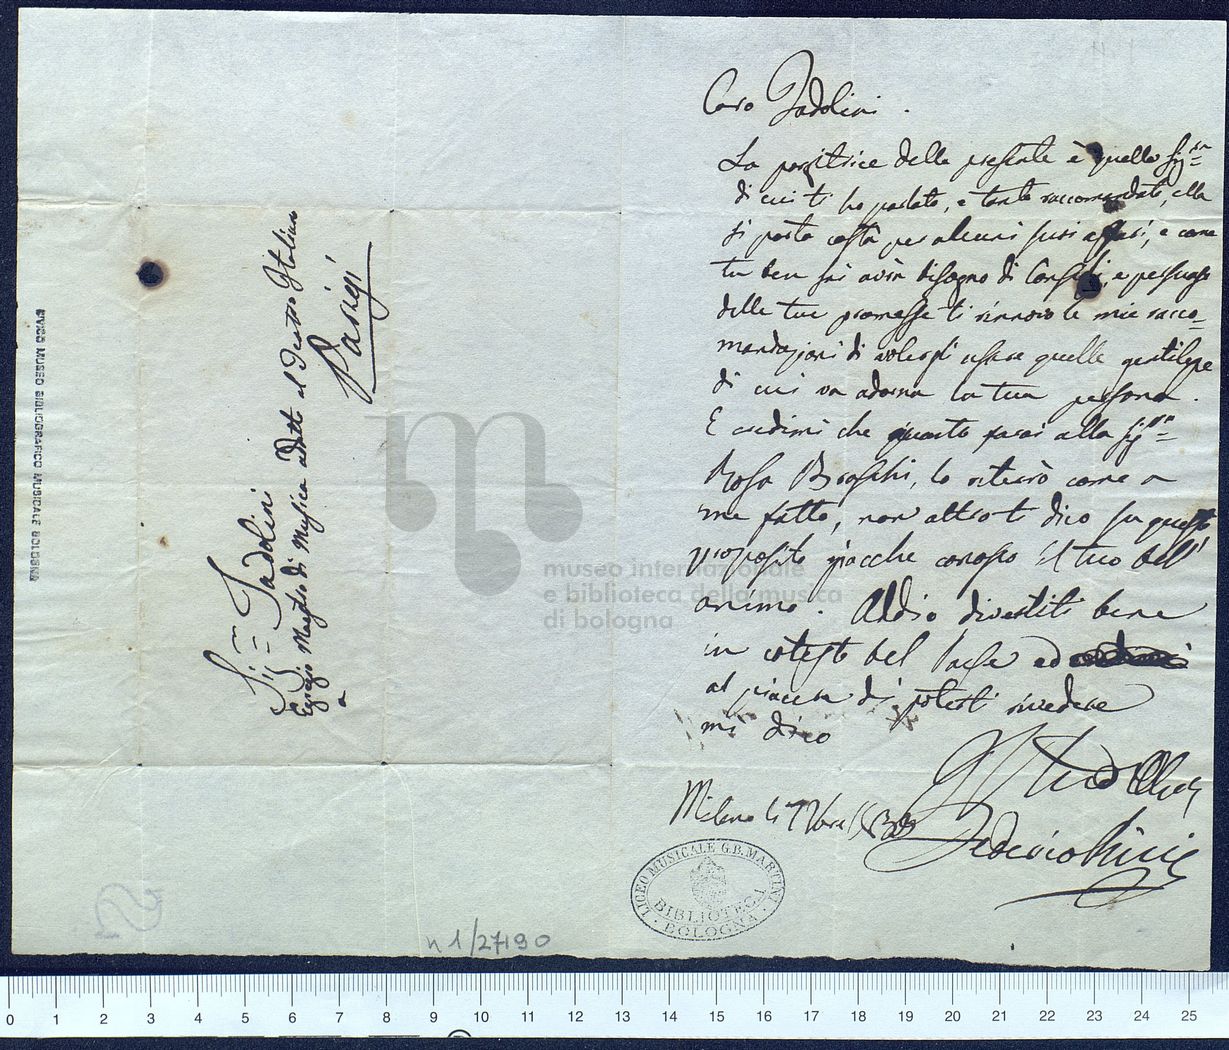 Caro Tadolini.
La portatrice della presente è quella Sig.ra
di cui ti ho parlato, e tanto raccomandato, ella
si porta costà per alcuni suoi affari, e come
tu ben sai avrà bisogno di Consigli, e persuaso
delle tue promesse ti rinnovo le mie racco=
mandazioni di volergli usare quelle gentilezze
di cui va adorna la tua persona.
E credimi che quanto farai alla Sig.ra
Rosa Broschi, lo riterrò come a
me fatto, non altro ti dico su questo
proposito giacche conosco il tuo bell'
animo. Addio divertiti bene
in cotesto bel Paese ed
al piacere di poterti rivedere
mi dico
Milano li 7
Federico Ricci
Sig.r Tadolini
Egregio Maestro di Musica addetto al Teatro Italiano
a
Parigi
CIVICO MUSEO BIBLIOGRAFICO MUSICALE BOLOGNA
LICEO MUSICALE G.B. MARTINI
BIBLIOTECA
BOLOGNA
n 1/27190
museo internazionale
e biblioteca della musica
di bologna
0 1 2 3 4 5 6 7 8 9 10 11 12 13 14 15 16 17 18 19 20 21 22 23 24 25